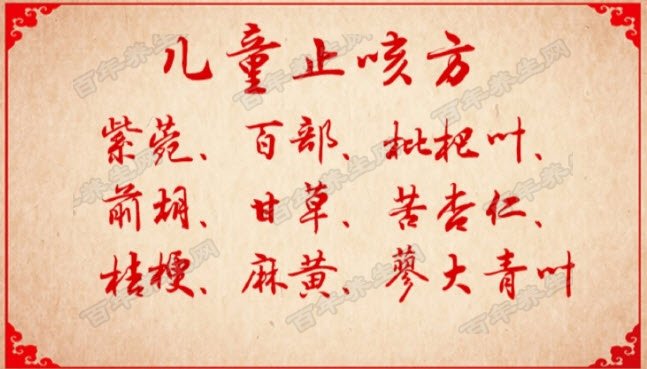 儿童止咳方
紫菀、百部、枇杷叶、
前胡、甘草、苦杏仁、
桔梗、麻黄、蓼大青叶
百年养生网
百年养生网
百年养生网
百年养生网
百年养生网
百年养生网